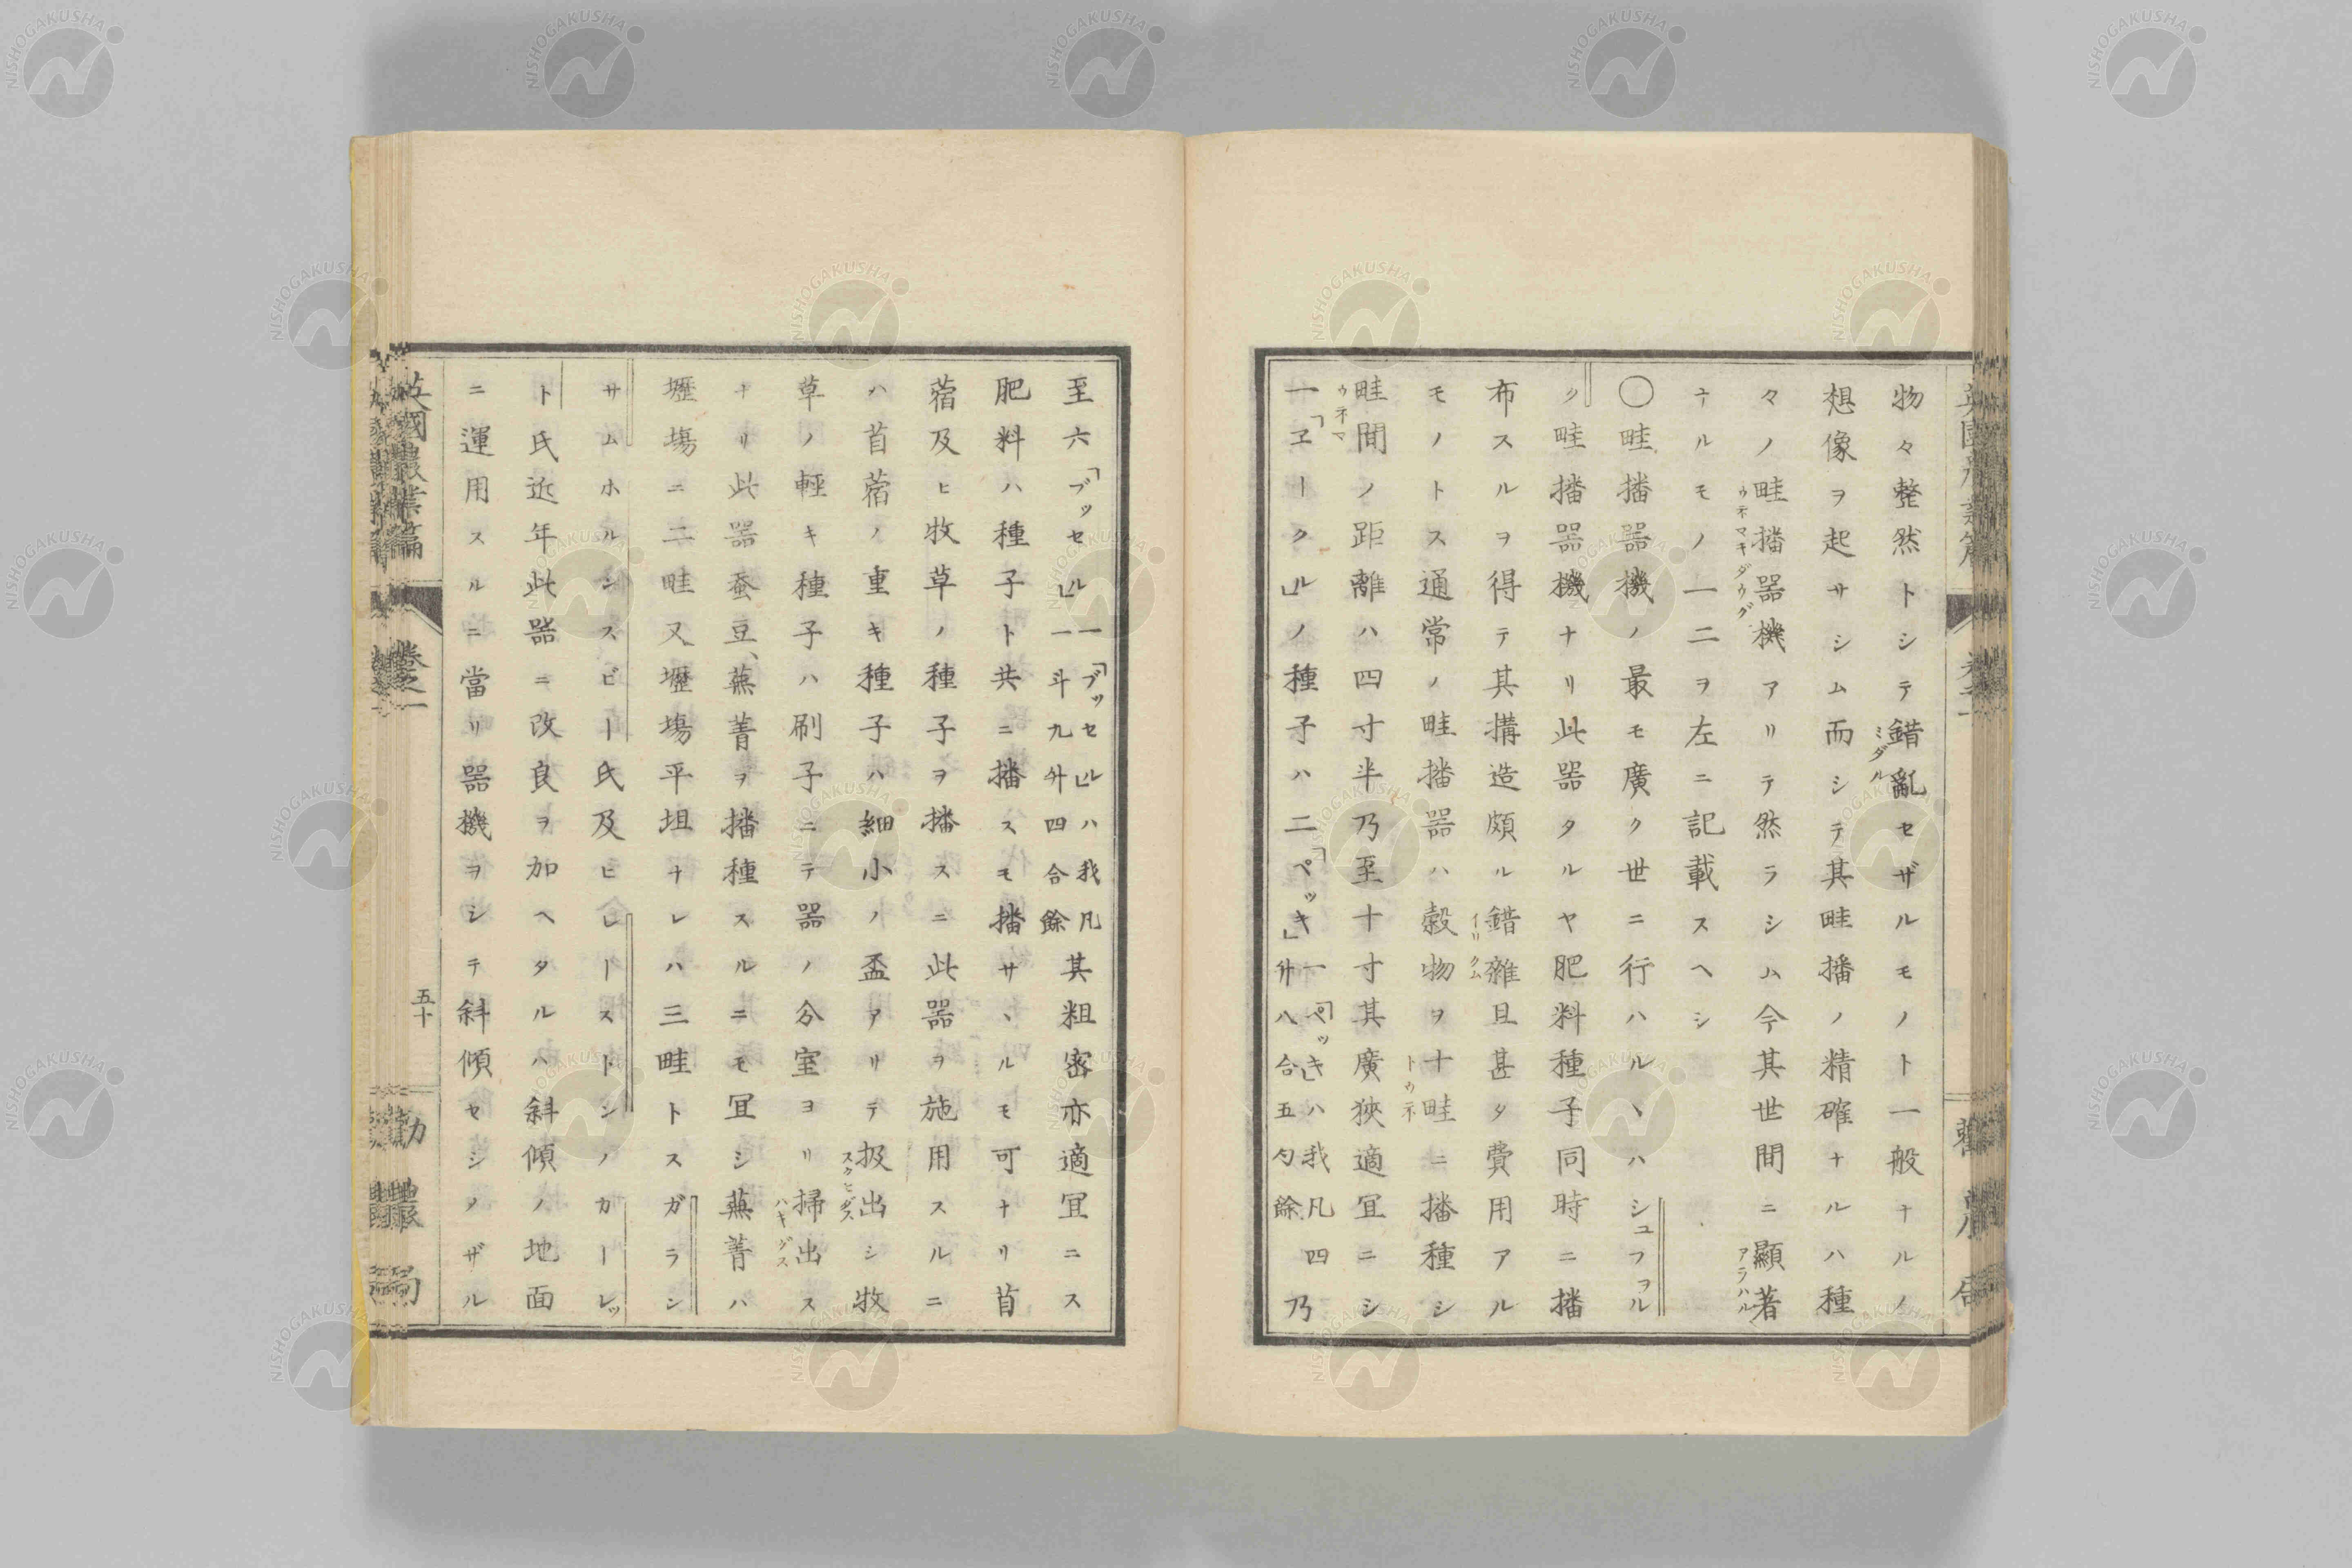 物々整然トシテ錯亂セザルモノト一般ナルノ
想像ヲ起サシム而シテ其畦播ノ精確ナルハ種
々ノ畦播器機アリテ然ラシム今其世間ニ顯著
ナルモノ一二ヲ左ニ記載スヘシ
〇畦播器機ノ最モ廣ク世ニ行ハルヽハシユフヲル
ク畦播器機ナリ此器タルヤ肥料種子同時ニ播
布スルヲ得テ其搆造頗ル錯雜且甚タ費用アル
モノトス通常ノ畦播器ハ穀物ヲ十畦ニ播種シ
畦間ノ距離ハ四寸半乃至十寸其廣狹適宜ニシ
一「ヱークル」ノ種子ハ二「ペッキ」一「ペッキ」ハ我凡四升八合五勺餘乃
至六「ブッセル」一「ブッセル」ハ我凡一斗九升四合餘其粗密亦適宜ニス
肥料ハ種子ト共ニ播スモ播サヽルモ可ナリ苜
蓿及ヒ牧草ノ種子ヲ播スニ此器ヲ施用スルニ
ハ苜蓿ノ重キ種子ハ細小ノ盃アリテ扱出シ牧
草ノ輕キ種子ハ刷子ニテ器ノ分室ヨリ掃出ス
ナリ此器蚕豆、蕪菁ヲ播種スルニモ宜シ蕪菁ハ
壢塲ニ二畦又壢塲平坦ナレハ三畦トスガラン
サムホルシスビー氏及ヒレーストンノカーレッ
ト氏近年此器ニ改良ヲ加ヘタルハ斜傾ノ地面
ニ運用スルニ當リ器機ヲシテ斜傾セシメザル
英國農業篇 卷之一 五十 勸農局